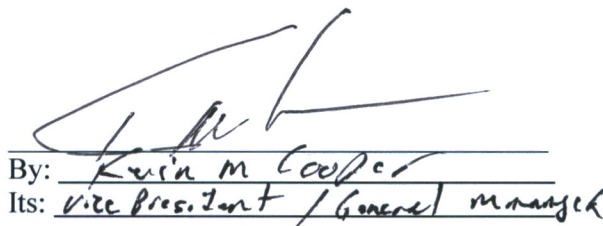 By: Kevin M Cooper
Its: Vice President / General Manager